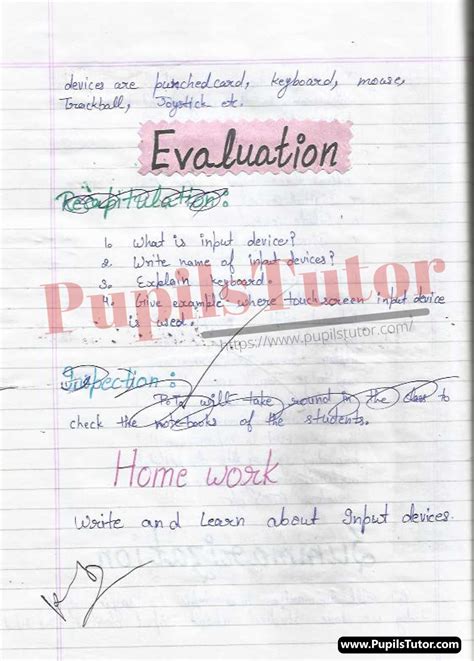 devices are punched card, keyboard, mouse,
Trackball, Joystick etc.
Evaluation
Recapitulation:
1. What is input device?
2. Write name of input devices?
3. Explain keyboard.
4. Give example where touchscreen input device
is used.
PupilsTutor
https://www.pupilstutor.com/
Inspection:
P.T. will take round in the class to
check the notebooks of the students.
Home work
Write and Learn about Input devices.
www.PupilsTutor.com